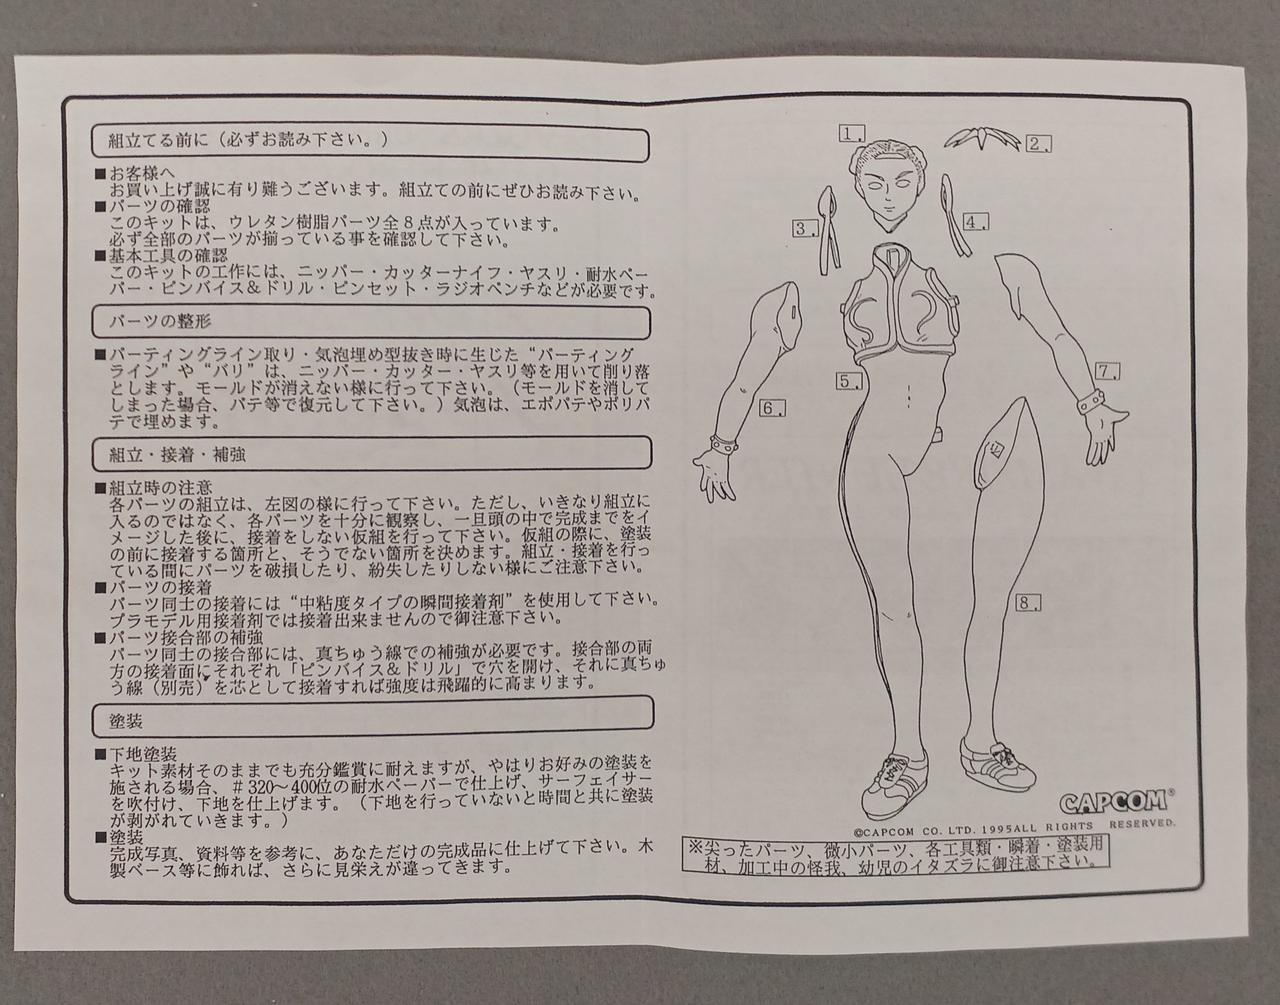 組立てる前に（必ずお読み下さい。）
■お客様へ
お買い上げ誠に有り難うございます。組立ての前にぜひお読み下さい。
■パーツの確認
このキットは、ウレタン樹脂パーツ全８点が入っています。
必ず全部のパーツが揃っている事を確認して下さい。
■基本工具の確認
このキットの工作には、ニッパー・カッターナイフ・ヤスリ・耐水ペー
パー・ピンバイス＆ドリル・ピンセット・ラジオペンチなどが必要です。
パーツの整形
■パーティングライン取り・気泡埋め型抜き時に生じた“パーティング
ライン”や“バリ”は、ニッパー・カッター・ヤスリ等を用いて削り落
とします。モールドが消えない様に行って下さい。（モールドを消して
しまった場合、パテ等で復元して下さい。）気泡は、エポパテやポリパ
テで埋めます。
組立・接着・補強
■組立時の注意
各パーツの組立は、左図の様に行って下さい。ただし、いきなり組立に
入るのではなく、各パーツを十分に観察し、一旦頭の中で完成までをイ
メージした後に、接着をしない仮組を行って下さい。仮組の際に、塗装
の前に接着する箇所と、そうでない箇所を決めます。組立・接着を行っ
ている間にパーツを破損したり、紛失したりしない様にご注意下さい。
■パーツの接着
パーツ同士の接着には“中粘度タイプの瞬間接着剤”を使用して下さい。
プラモデル用接着剤では接着出来ませんので御注意下さい。
■パーツ接合部の補強
パーツ同士の接合部には、真ちゅう線での補強が必要です。接合部の両
方の接着面にそれぞれ「ピンバイス＆ドリル」で穴を開け、それに真ちゅ
う線（別売）を芯として接着すれば強度は飛躍的に高まります。
塗装
■下地塗装
キット素材そのままでも充分鑑賞に耐えますが、やはりお好みの塗装を
施される場合、＃320～400位の耐水ペーパーで仕上げ、サーフェイサー
を吹付け、下地を仕上げます。（下地を行っていないと時間と共に塗装
が剥がれていきます。）
■塗装
完成写真、資料等を参考に、あなただけの完成品に仕上げて下さい。木
製ベース等に飾れば、さらに見栄えが違ってきます。
1.
2.
3.
4.
5.
6.
7.
8.
CAPCOM®
©CAPCOM CO. LTD. 1995ALL RIGHTS RESERVED.
※尖ったパーツ、微小パーツ、各工具類・瞬着・塗装用
材、加工中の怪我、幼児のイタズラに御注意下さい。